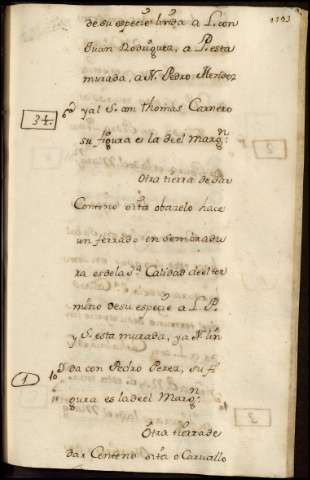 de su especie linda a L. con
Juan Rodriguez, a P. esta
murada, a N. Pedro Mendez
34. y al S. con thomas Carnero
su figura es la de el marg.n
Otra tierra de dar
Centeno sita obarelo hace
un ferrado en sembradu
ra es de la S.da Calidad de el ter
mino de su especie a L. P.
y S. esta murada, ya N. lin
1 da con Pedro Perez, su fi
gura es la de el Marg.n
Otra tierra de
dar Centeno sita o Carvallo